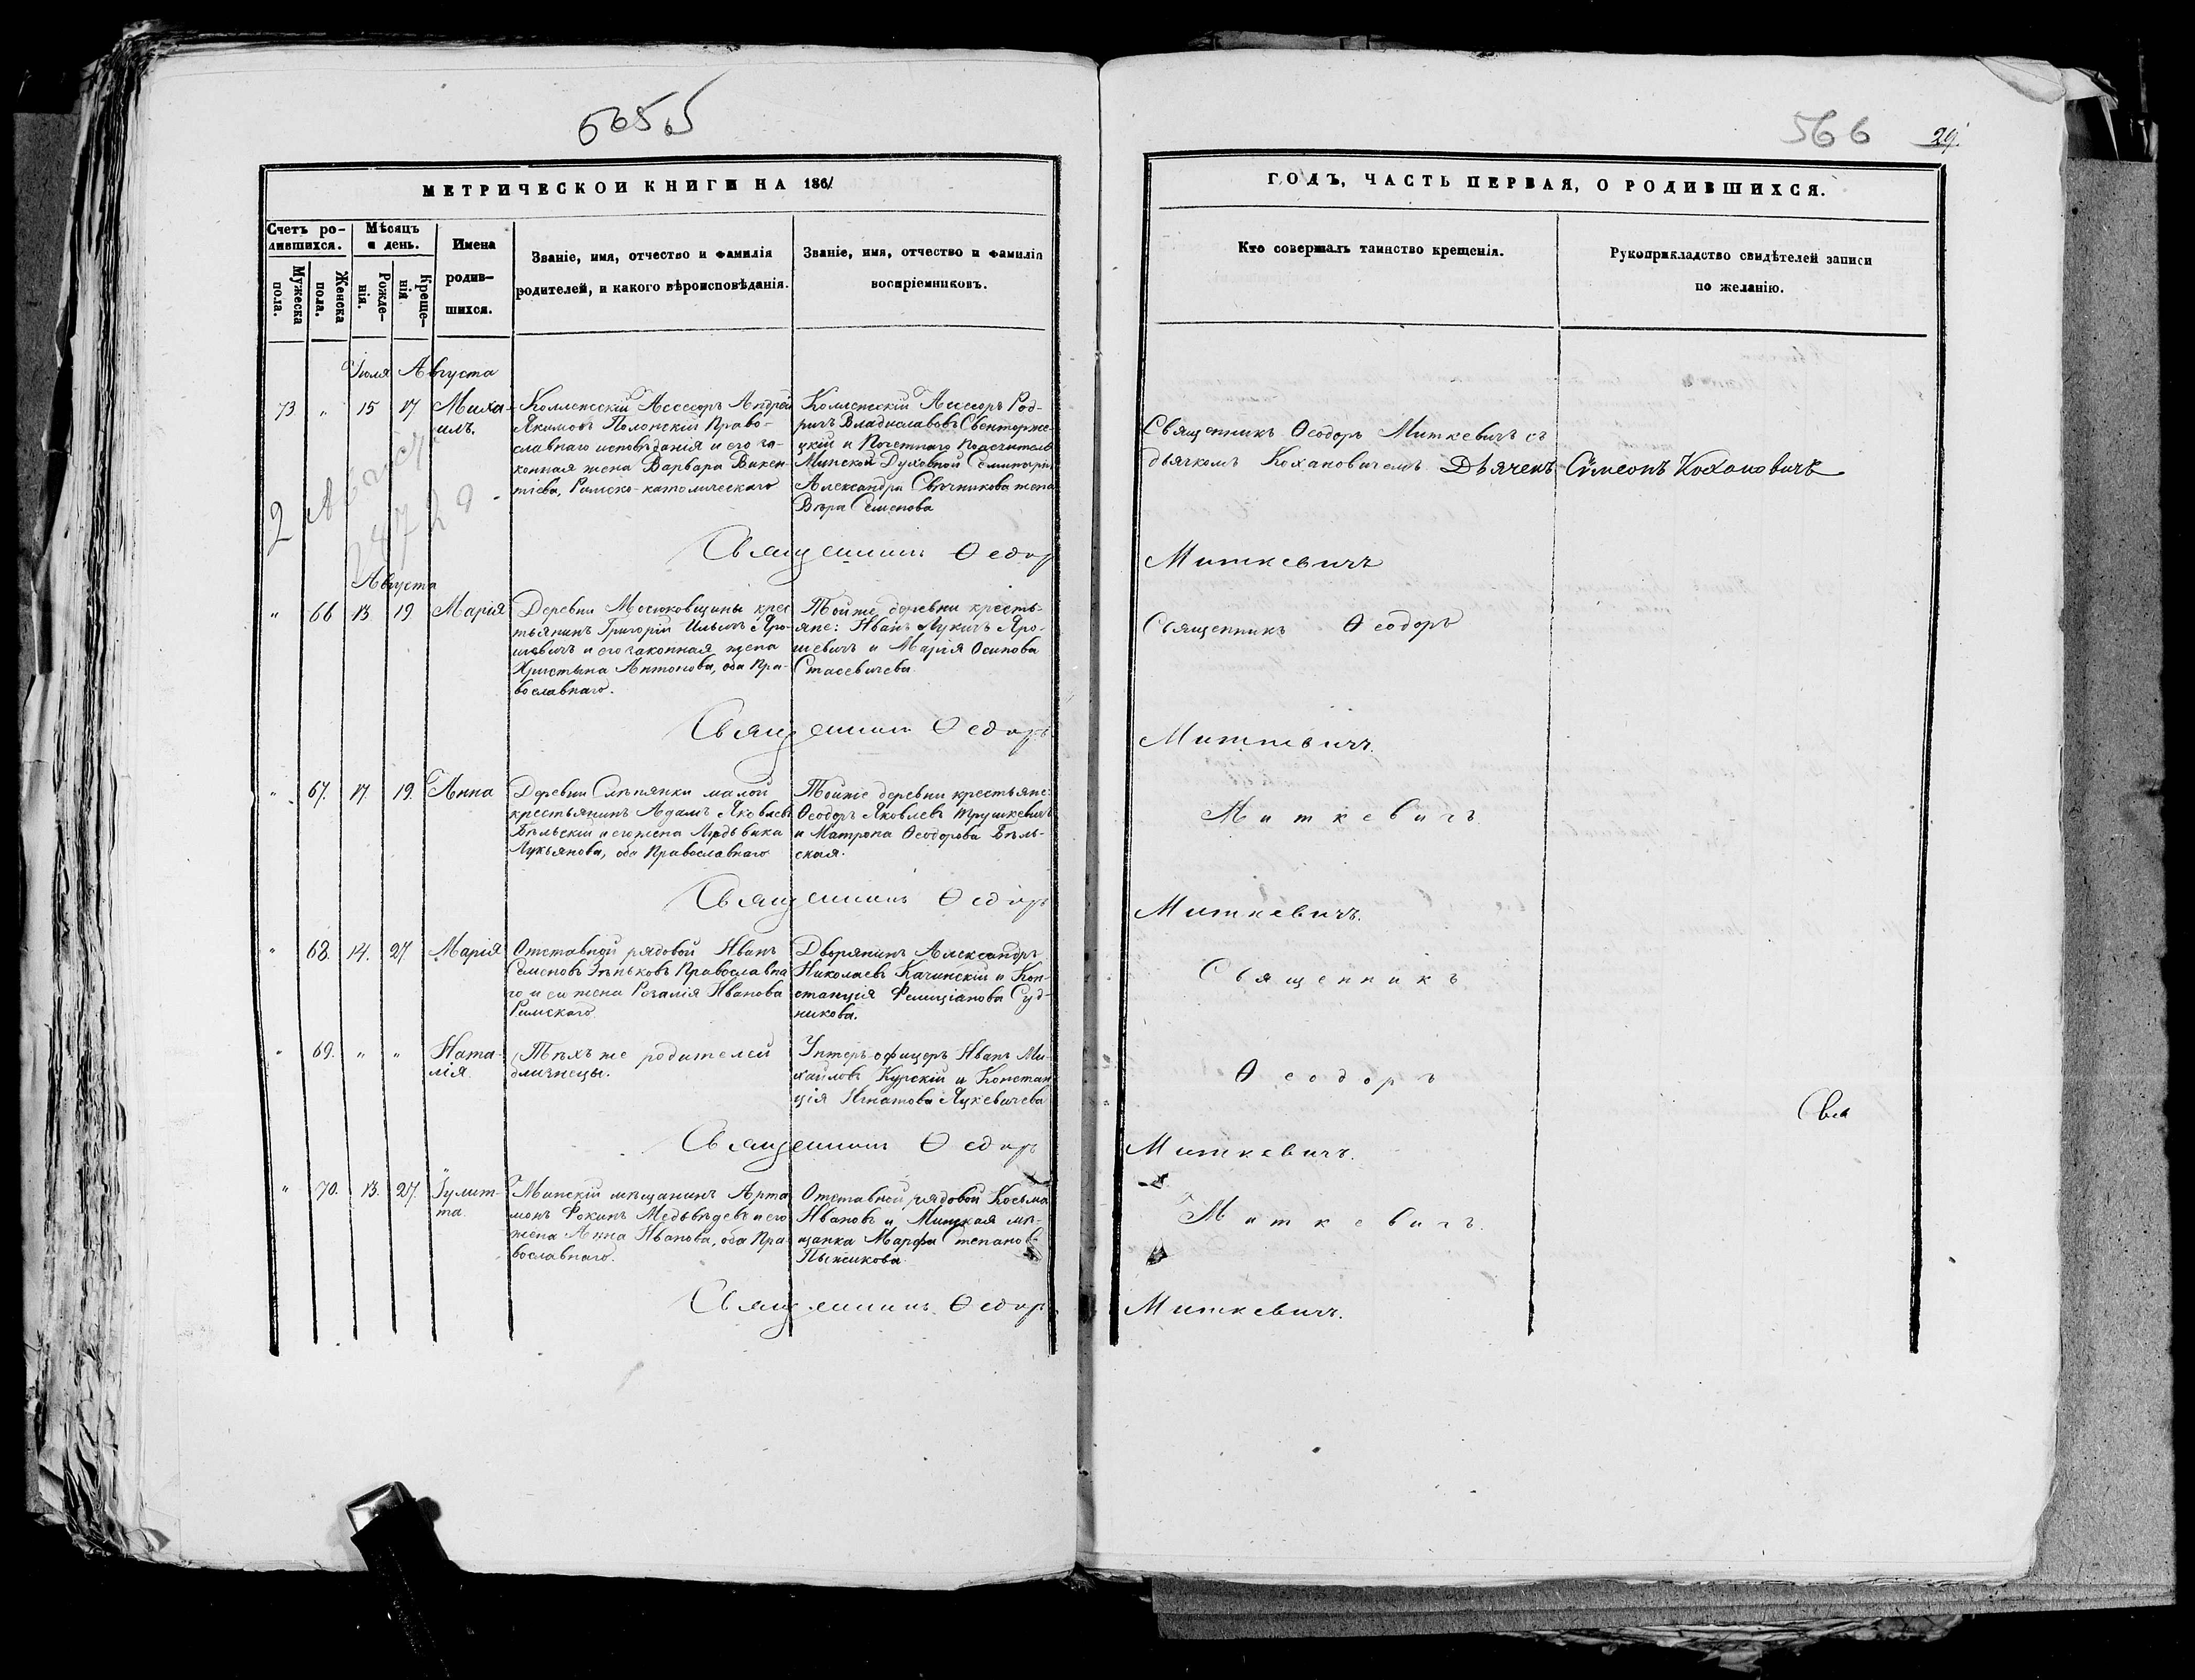 565
566
29.
МЕТРИЧЕСКОЙ КНИГИ НА 1861
ГОДЪ, ЧАСТЬ ПЕРВАЯ, О РОДИВШИХСЯ.
Счетъ родившихся.
Мужеска пола.
Женска пола.
Мѣсяцъ и день.
Рожденія.
Крещенія
Имена
родив-
шихся.
Званіе, имя, отчество и фамилія
родителей, и какого вѣроисповѣданія.
Званіе, имя, отчество и фамилія
воспріемниковъ.
Кто совершалъ таинство крещенія.
Рукоприкладство свидѣтелей записи
по желанію.
Іюля Августа
73 " 15 17 Миха-
илъ.
Коллежскій Ассесоръ Андрей
Якимовъ Полонскій Право-
славнаго исповѣданія и его за-
конная жена Варвара Викен-
тіева, Римско-католическаго
Коллежскій Ассесоръ Род-
ригъ Владиславовъ Свенторже-
цкій и Почетнаго Попечителя
Минской Духовной Семинаріи
Александра Свѣчникова жена
Вѣра Семенова
Священникъ Ѳеодоръ Миткевичъ съ
дьячкомъ Кохановичемъ.
Дьячекъ Сѵмеонъ Кохановичъ
Священникъ Ѳеодоръ
Миткевичъ
Августа
" 66 13 19 Марія
Деревни Мосюковщины крес-
тьянинъ Григорій Ильичъ Яро-
шевичъ и его законная жена
Христина Антонова, оба Пра-
вославнаго.
Тойже деревни кресть-
яне: Иванъ Лукичъ Яро-
шевичъ и Марія Осипова
Стасевичева
Священникъ Ѳеодоръ
Священникъ Ѳеодоръ
Миткевичъ.
" 67. 17. 19. Анна
Деревни Слѣпянки малой
крестьянинъ Адамъ Яковлевъ
Бѣльскій и его жена Людвика
Лукьянова, оба Православнаго
Тойже деревни крестьяне:
Ѳеодоръ Яковлевъ Трушкевичъ
и Матрона Ѳеодорова Бѣль-
ская.
Миткевичъ
Священникъ Ѳеодоръ
Миткевичъ.
" 68. 14. 27 Марія
Отставной рядовой Иванъ
Семеновъ Зѣньковъ Православна
го и его жена Розалія Иванова
Римскаго
Дворянинъ Александръ
Николаевъ Качинскій и Кон-
станція Фелиціанова Суд-
никова.
Священникъ
" 69. " " Ната-
лія.
Тѣхъ же родителей
близнецы.
Унтеръ-офицеръ Иванъ Ми-
хайловъ Курскій и Констан
ція Игнатова Яцкевичева
Ѳеодоръ
Свя
Священникъ Ѳеодоръ
Миткевичъ.
" 70. 13. 27. Іулит-
та.
Минскій мѣщанинъ Арта
монъ Фокинъ Медвѣдевъ и его
жена Анна Иванова, оба Пра-
вославнаго.
Отставной рядовой Косьма
Ивановъ и Минская мѣ-
щанка Марфа Степанов
Пыжикова
Миткевичъ.
Священникъ Ѳеодоръ
Миткевичъ.